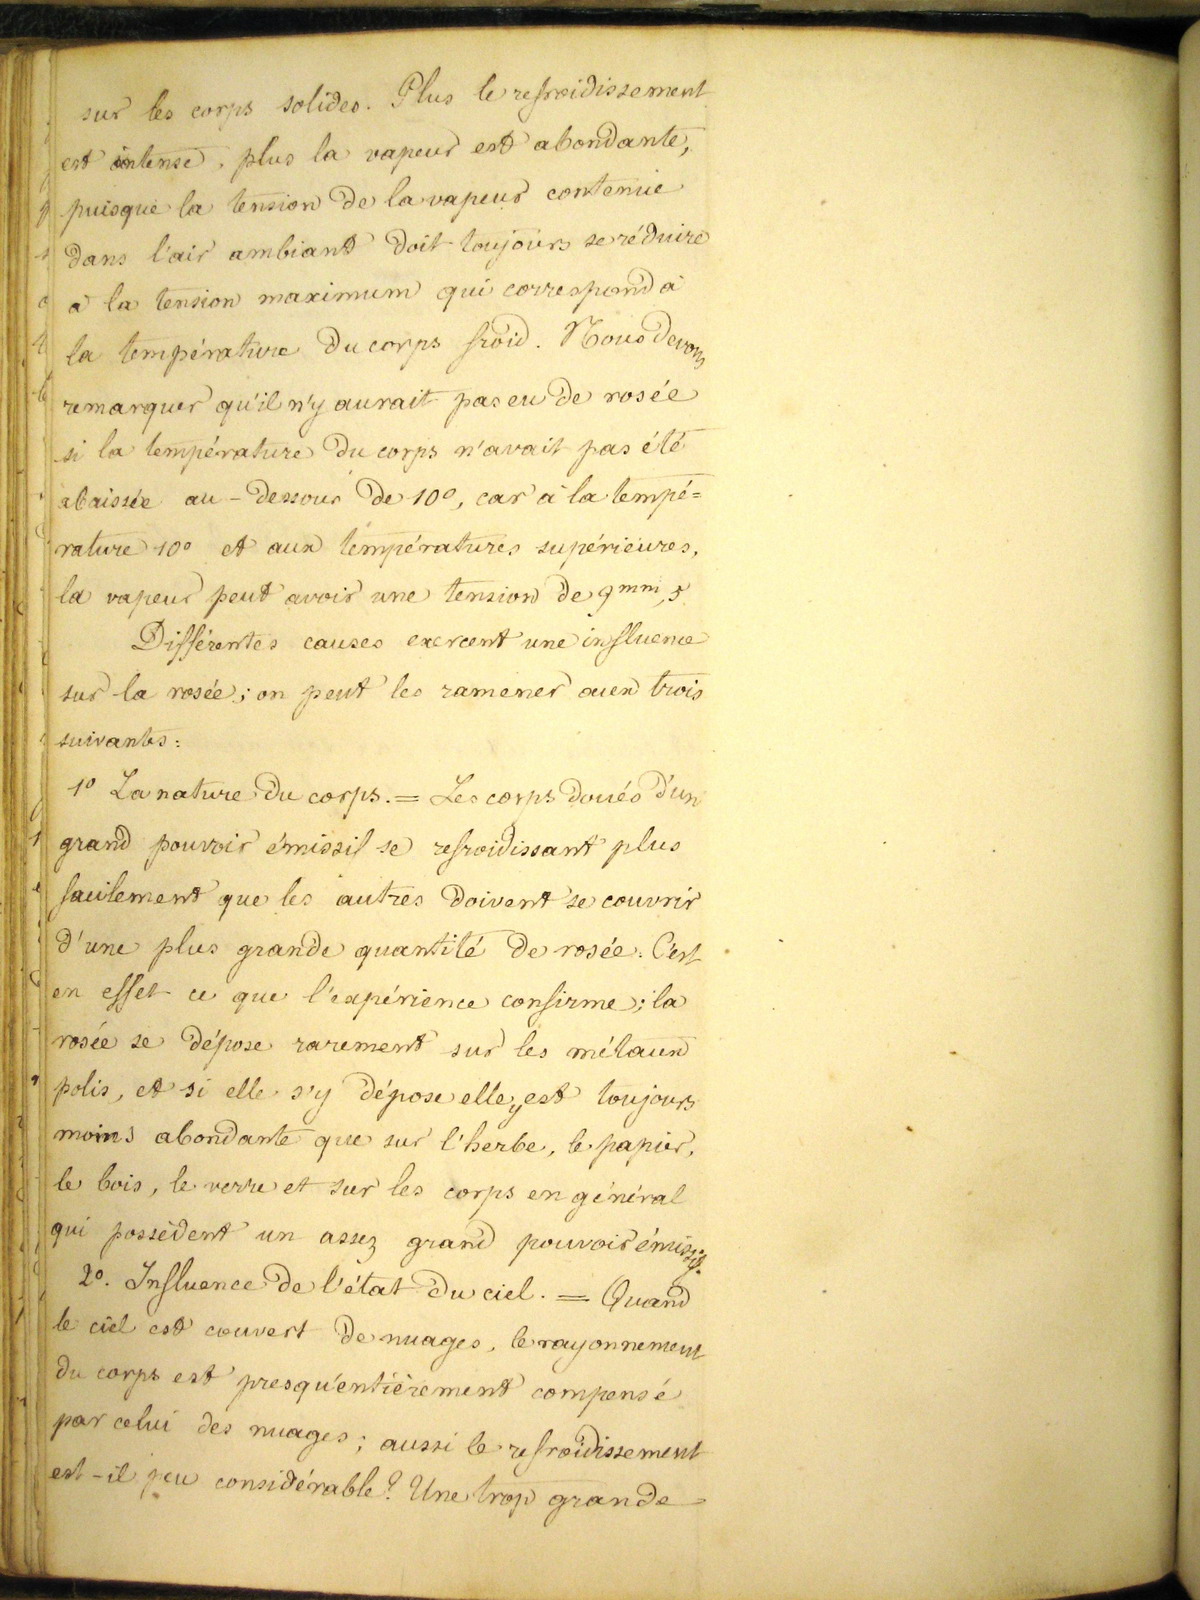 sur les corps solides. Plus le refroidissement
est intense, plus la vapeur est abondante,
puisque la tension de la vapeur contenue
dans l'air ambiant doit toujours se réduire
à la tension maximum qui correspond à
la température du corps froid. Nous devons
remarquer qu'il n'y aurait pas eu de rosée
si la température du corps n'avait pas été
abaissée au-dessous de 10°, car à la tempé=
rature 10° et aux températures supérieures,
la vapeur peut avoir une tension de 9mm,5
Différentes causes exercent une influence
sur la rosée; on peut les ramener aux trois
suivantes:
1° La nature du corps. = Les corps doués d'un
grand pouvoir émissif se refroidissant plus
facilement que les autres doivent se couvrir
d'une plus grande quantité de rosée. C'est
en effet ce que l'expérience confirme; la
rosée se dépose rarement sur les métaux
polis, et si elle s'y dépose elle y est toujours
moins abondante que sur l'herbe, le papier,
le bois, le verre et sur les corps en général
qui possèdent un assez grand pouvoir émissif.
2°. Influence de l'état du ciel. = Quand
le ciel est couvert de nuages, le rayonnement
du corps est presqu'entièrement compensé
par celui des nuages; aussi le refroidissement
est-il peu considérable? Une trop grande